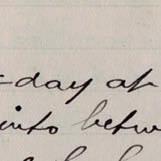 -day at
into betw